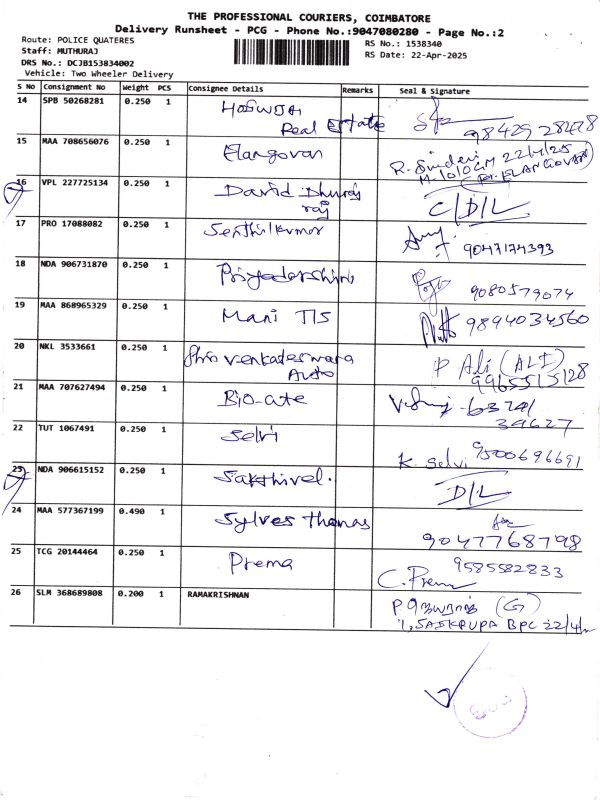 THE PROFESSIONAL COURIERS, COIMBATORE
Delivery Runsheet - PCG - Phone No.:9047080280 - Page No.:2
Route: POLICE QUATERES
Staff: MUTHURAJ
DRS No.: DCJB153834002
Vehicle: Two Wheeler Delivery
RS No.: 1538340
RS Date: 22-Apr-2025
S No Consignment No Weight PCS Consignee Details Remarks Seal & Signature
14 SPB 50268281 0.250 1
Real Estate
9842928478
15 MAA 708656076 0.250 1 Elangovan
22/4/25
16 VPL 227725134 0.250 1 David Dhuraj
raj
C/D/L
17 PRO 17088082 0.250 1 Senthilkumar
9047174393
18 NDA 906731870 0.250 1 Priyadarshini
9080579074
19 MAA 868965329 0.250 1 Mani TIS 9894034560
20 NKL 3533661 0.250 1 Shri Venkadeswara
Auto
P Ali (ALI)
9965515128
21 MAA 707627494 0.250 1 63741
34627
22 TUT 1067491 0.250 1 Selvi
K. Selvi 9500696691
23 NDA 906615152 0.250 1 Sakthivel.
D/L
24 MAA 577367199 0.490 1 Sylves Thomas
9047768798
25 TCG 20144464 0.250 1 Prema 9585582833
C. Prema
26 SLM 368689808 0.200 1 RAMAKRISHNAN
(G)
BPC 22/4/